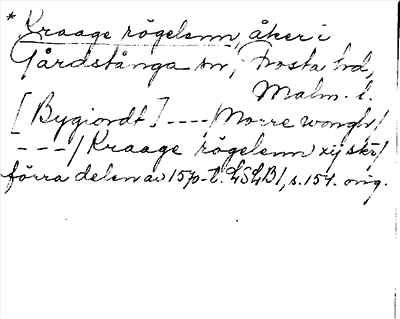 * Kraage rögelenn, åker i
Gårdstånga sn, Frosta hd,
Malm. l.
[Bygiordt] ----/Morre wongh/
---/Kraage rögelenn xij skr/
förra delen av 1570-t. LSLB1, s. 151. orig.